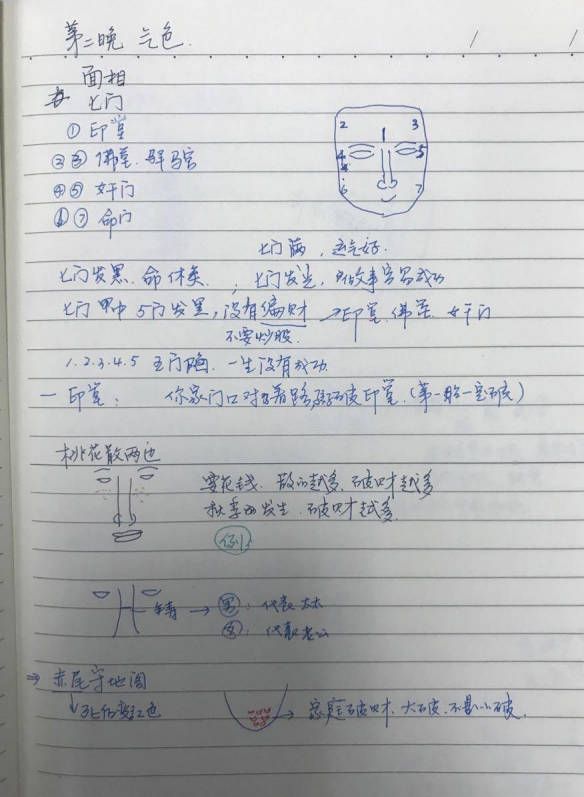 第二晚 气色.
面相
七门
① 印堂
②③ 佛堂. 驿马宫
④⑤ 奸门
⑥⑦ 命门
2 1 3
4 5
6 7
七门满, 运气好.
七门发黑. 命休矣. ; 七门发光, 做事容易成功
七门 中 5门发黑, 没有偏财 → 印堂. 佛堂. 奸门
不要炒股.
1.2.3.4.5 五门陷. 一生没有成功.
一 印堂: 你家门口对着路, 破印堂. (第一胎一定破)
桃花散两边
要花钱. 散的越多. 破财越多
秋季的发生. 破财越多.
→ 男: 代表太太
女: 代表老公
⇒ 赤尾守地阁
↓ 红色
→ 家庭破财. 大破. 不是小破.